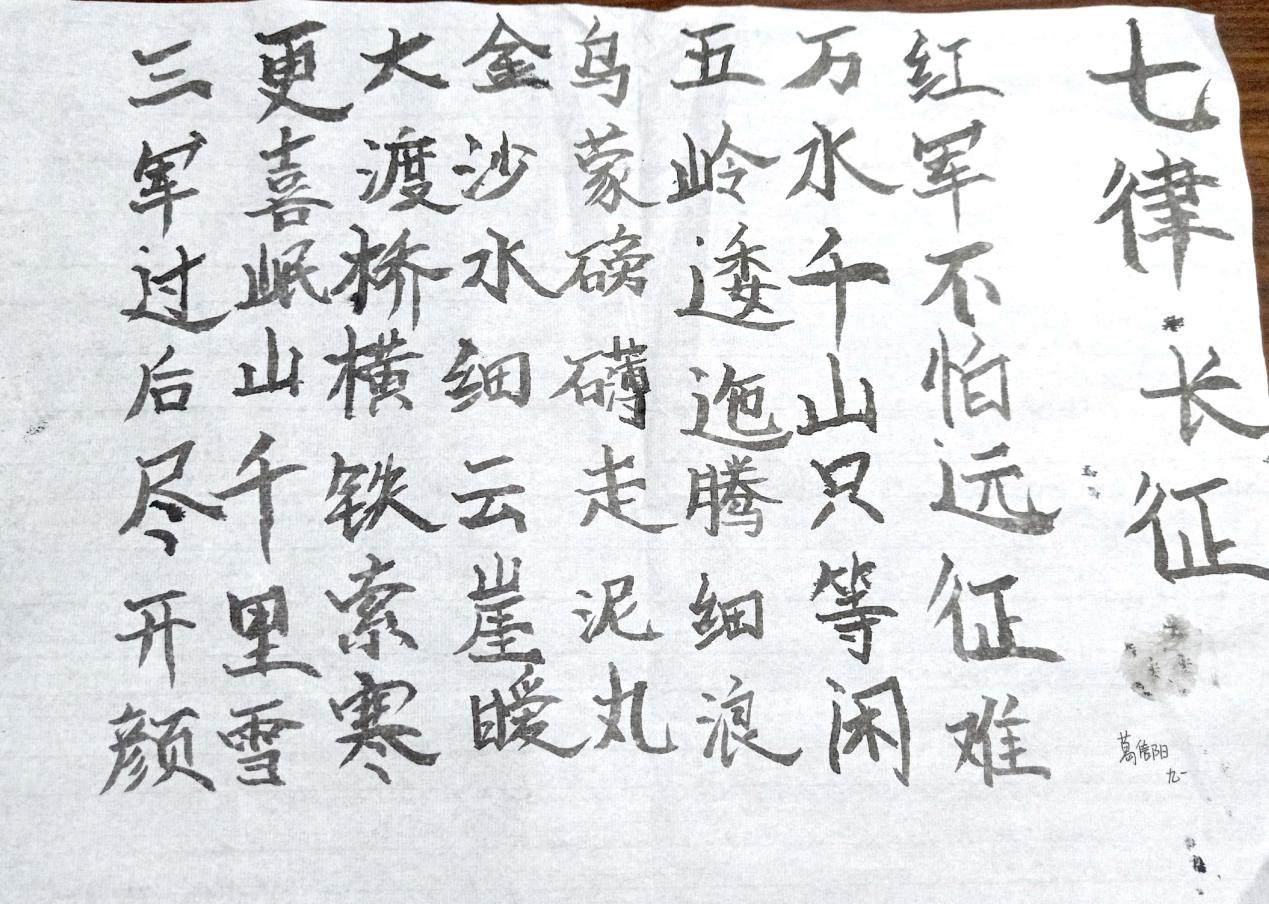 七律长征
红军不怕远征难
万水千山只等闲
五岭逶迤腾细浪
乌蒙磅礴走泥丸
金沙水细云崖暧
大渡桥横铁索寒
更喜岷山千里雪
三军过后尽开颜
葛阳
九一